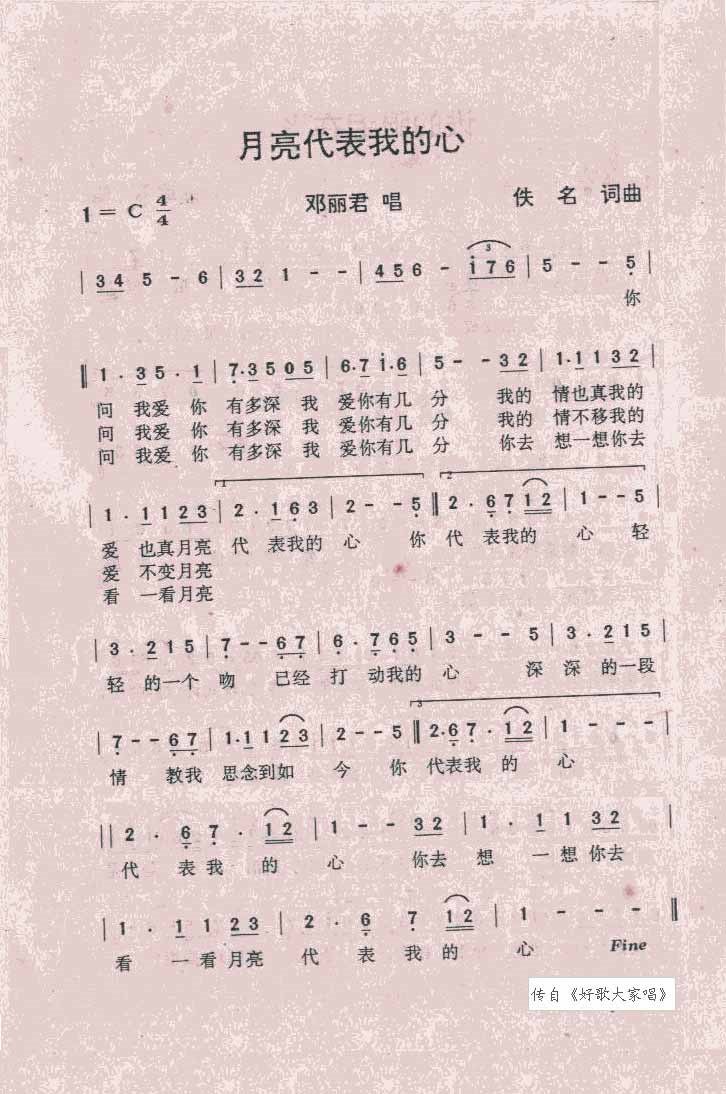 月亮代表我的心
1 = C 4/4 邓丽君 唱 佚 名 词曲
| 3 4 5 - 6 | 3 2 1 - - | 4 5 6 - i 7 6 | 5 - - 5 |
3
你
‖ 1 · 3 5 · 1 | 7 · 3 5 0 5 | 6 · 7 i · 6 | 5 - - 3 2 | 1 · 1 1 3 2 |
问 我爱 你 有多深 我 爱你有几 分 我的 情也真我的
问 我爱 你 有多深 我 爱你有几 分 我的 情不移我的
问 我爱 你 有多深 我 爱你有几 分 你去 想一想你去
1 2
| 1 · 1 1 2 3 | 2 · 1 6 3 | 2 - - 5 ‖ 2 · 6 7 · 1 2 | 1 - - 5 |
爱 也真月亮 代 表我的 心 你 代 表我的 心 轻
爱 不变月亮
看 一看月亮
| 3 · 2 1 5 | 7 - - 6 7 | 6 · 7 6 5 | 3 - - 5 | 3 · 2 1 5 |
轻 的一个 吻 已经 打 动我的 心 深 深 的一段
3
| 7 - - 6 7 | 1 · 1 1 2 3 | 2 - - 5 ‖ 2 · 6 7 · 1 2 | 1 - - - |
情 教我 思念到如 今 你 代表我 的 心
‖ 2 · 6 7 · 1 2 | 1 - - 3 2 | 1 · 1 1 3 2 |
代 表 我 的 心 你去 想 一 想你去
| 1 · 1 1 2 3 | 2 · 6 7 1 2 | 1 - - - ‖
看 一 看月亮 代 表 我 的 心 Fine
传自《好歌大家唱》